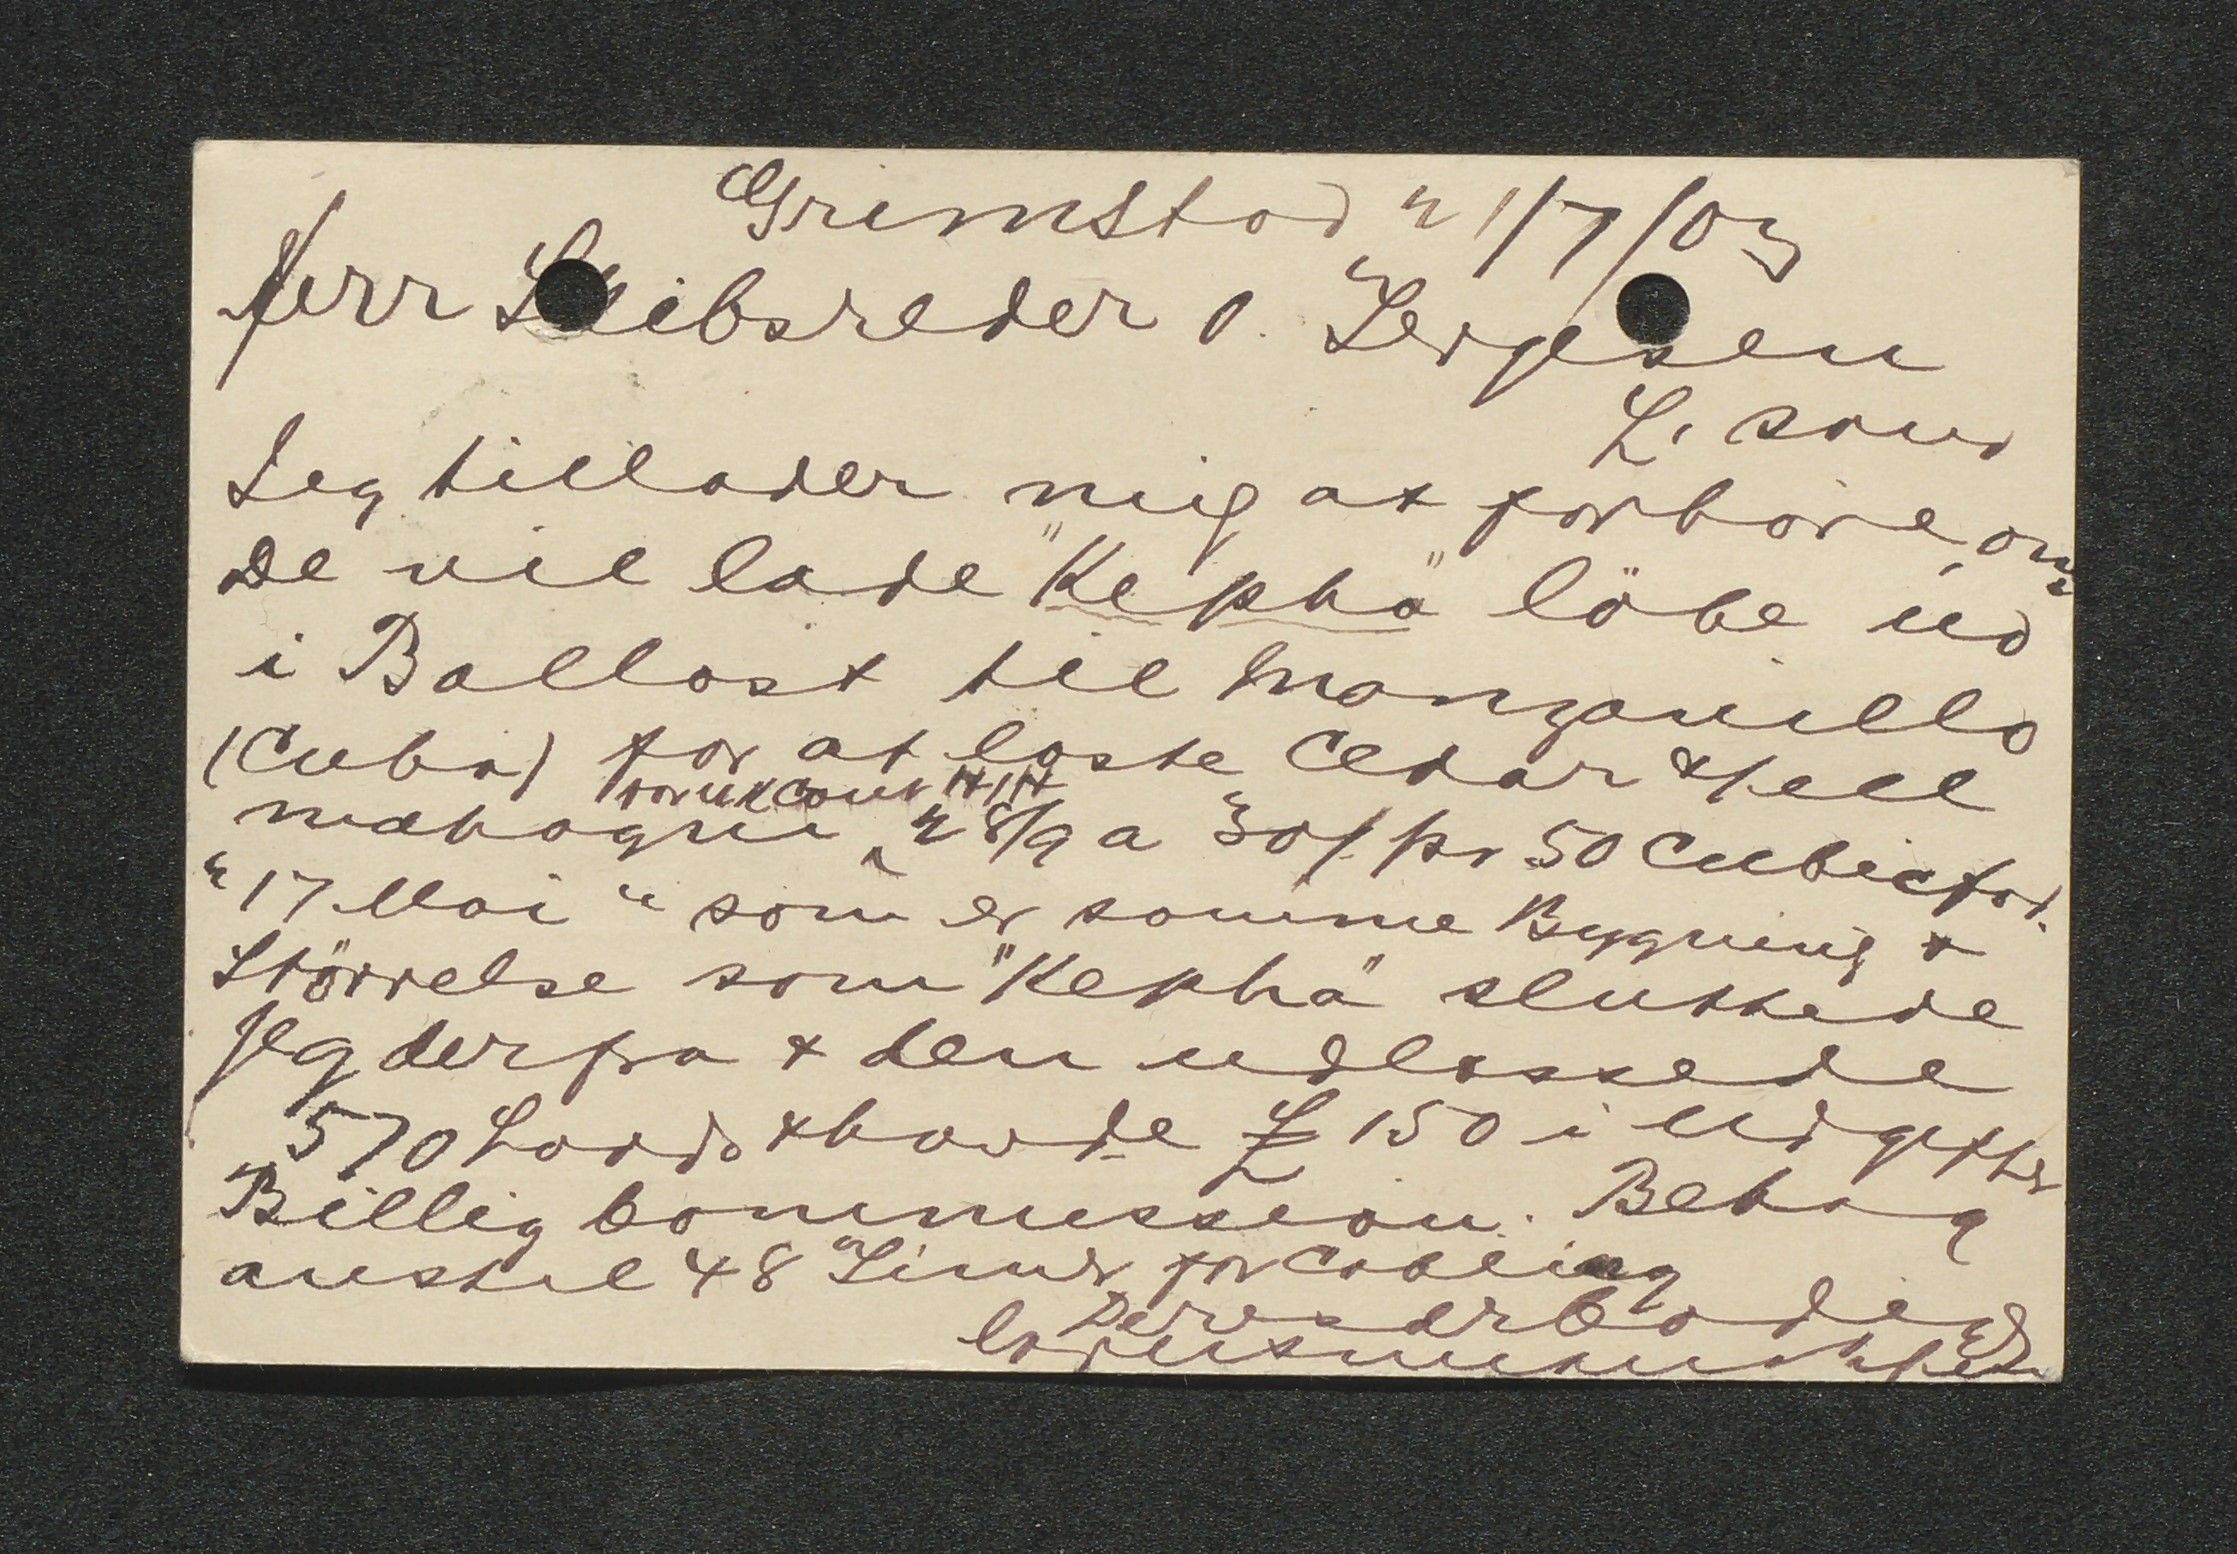 Grimstad 21/7/03
Herr Skibsreder O. Tergesen
L. sand
Jeg tillader mig at forhöre om
De vil lade "Kepha" löbe ud
i Ballast til Manzanillo
(Cuba) for at laste Cedar & Hell
for UK Cont H/H
mahogni 28/9 a 30/ pr 50 Cubicfod.
"17 Mai" som er samme Bygning &
Störrelse som "Kepha" sluttede
jeg derfra & den udlossede
570 Loads & havde £ 150 i Udgifter
Billig Commission. Behag
anstil 48 Timer for Cabling
Deres ærbødig